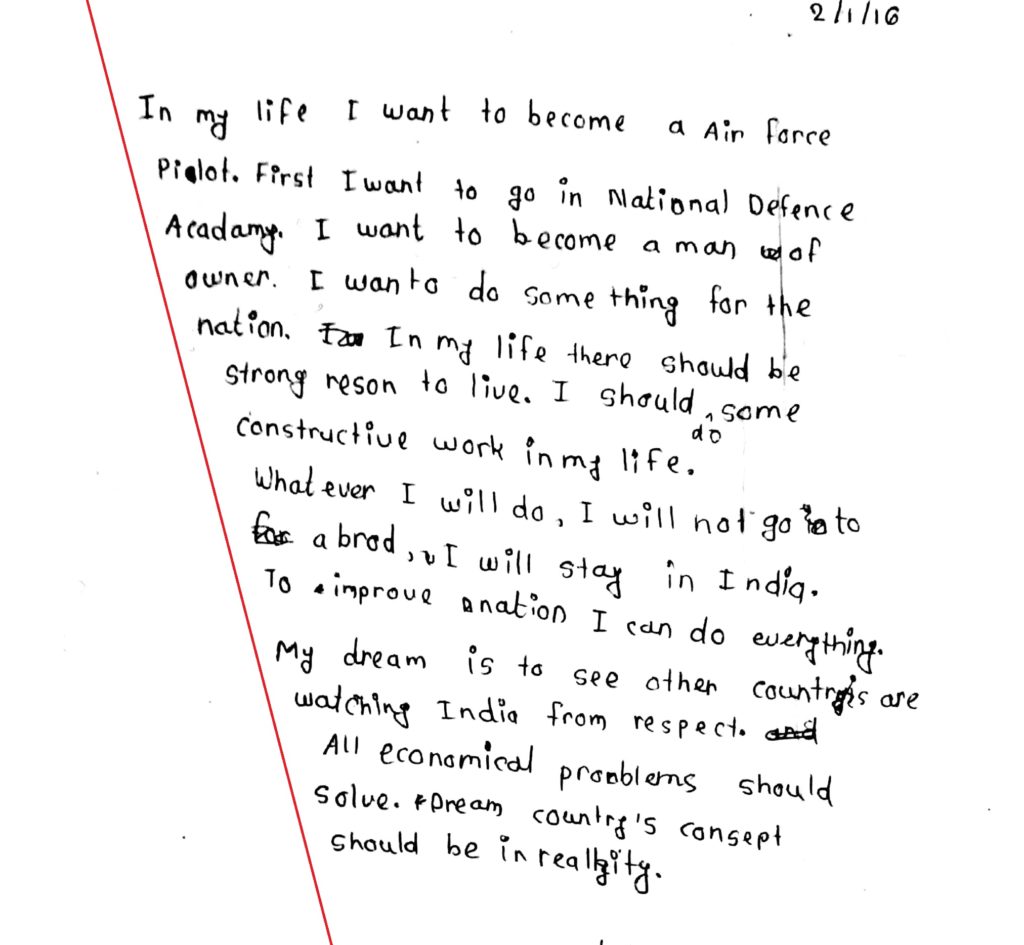 2/1/16
In my life I want to become a Air force
Pialot. First I want to go in National Defence
Acadamy. I want to become a man of
owner. I wanto do some thing for the
nation. In my life there should be
strong reson to live. I should do some
constructive work in my life.
What ever I will do, I will not go to
abrod, I will stay in India.
To improve nation I can do everything.
My dream is to see other countrys are
watching India from respect.
All economical problems should
solve. Dream country's consept
should be in reality.